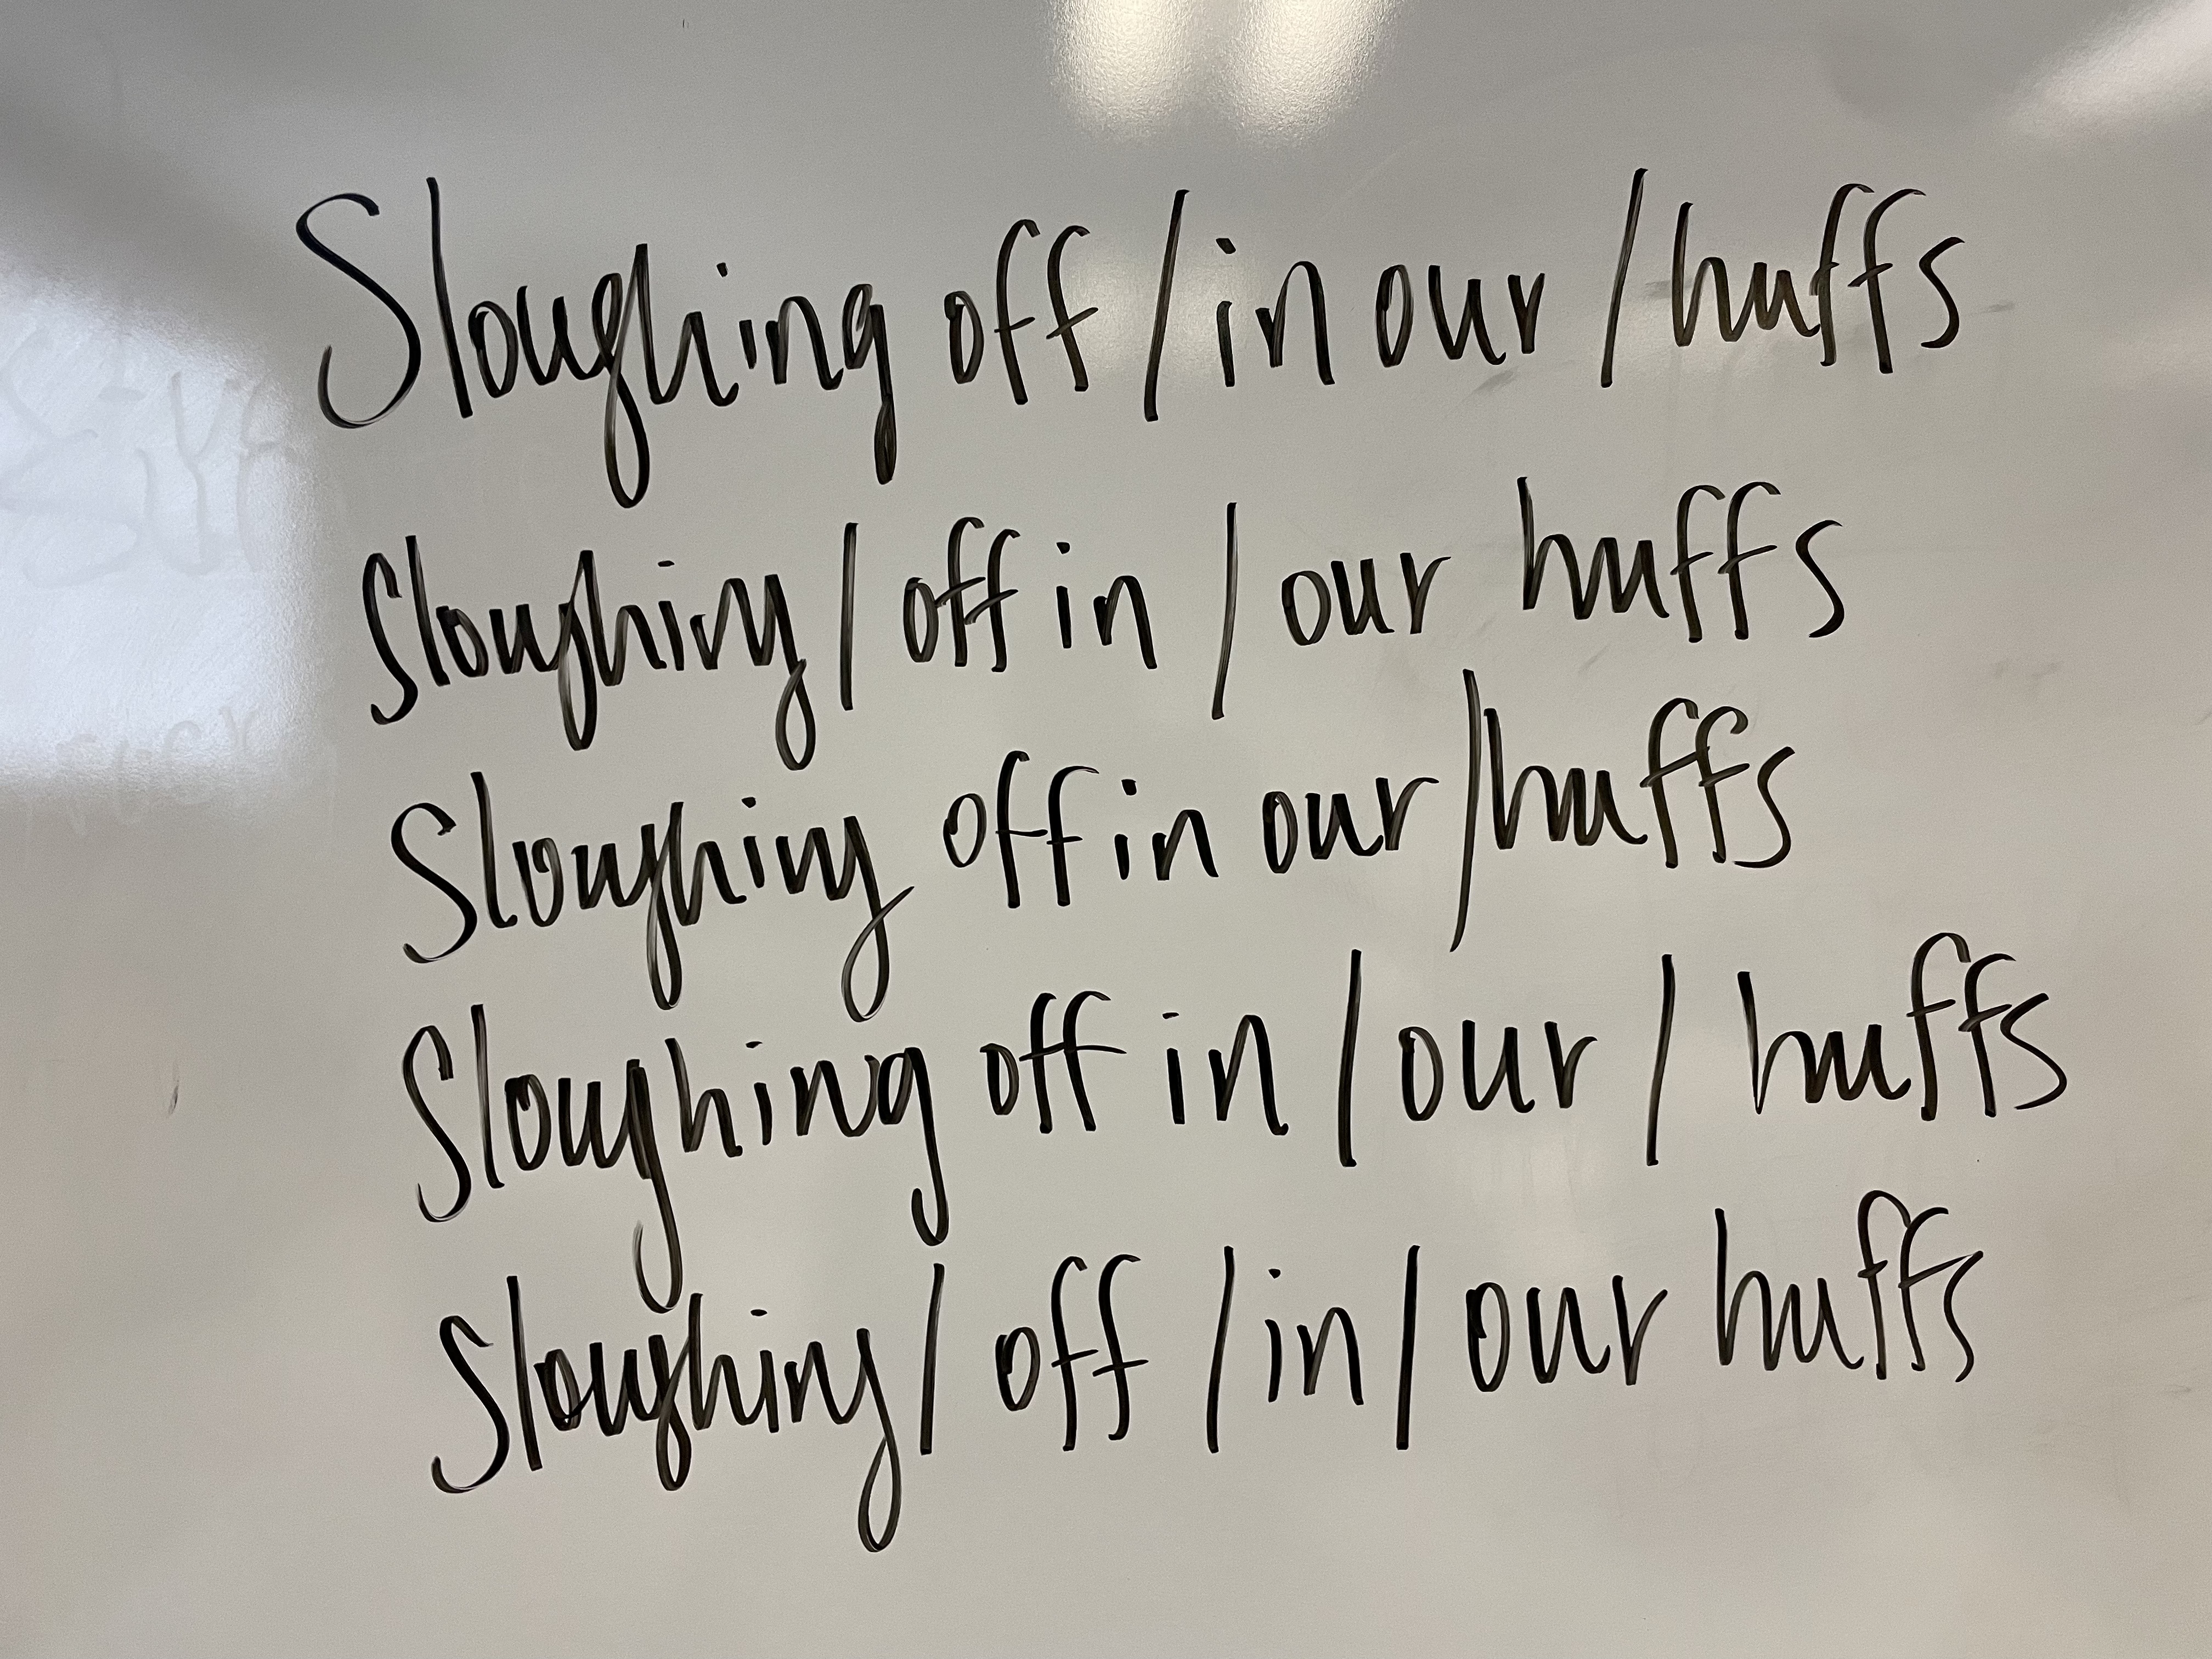 Sloughing off / in our / huffs
Sloughing / off in / our huffs
Sloughing off in our / huffs
Sloughing off in / our / huffs
Sloughing / off / in / our huffs